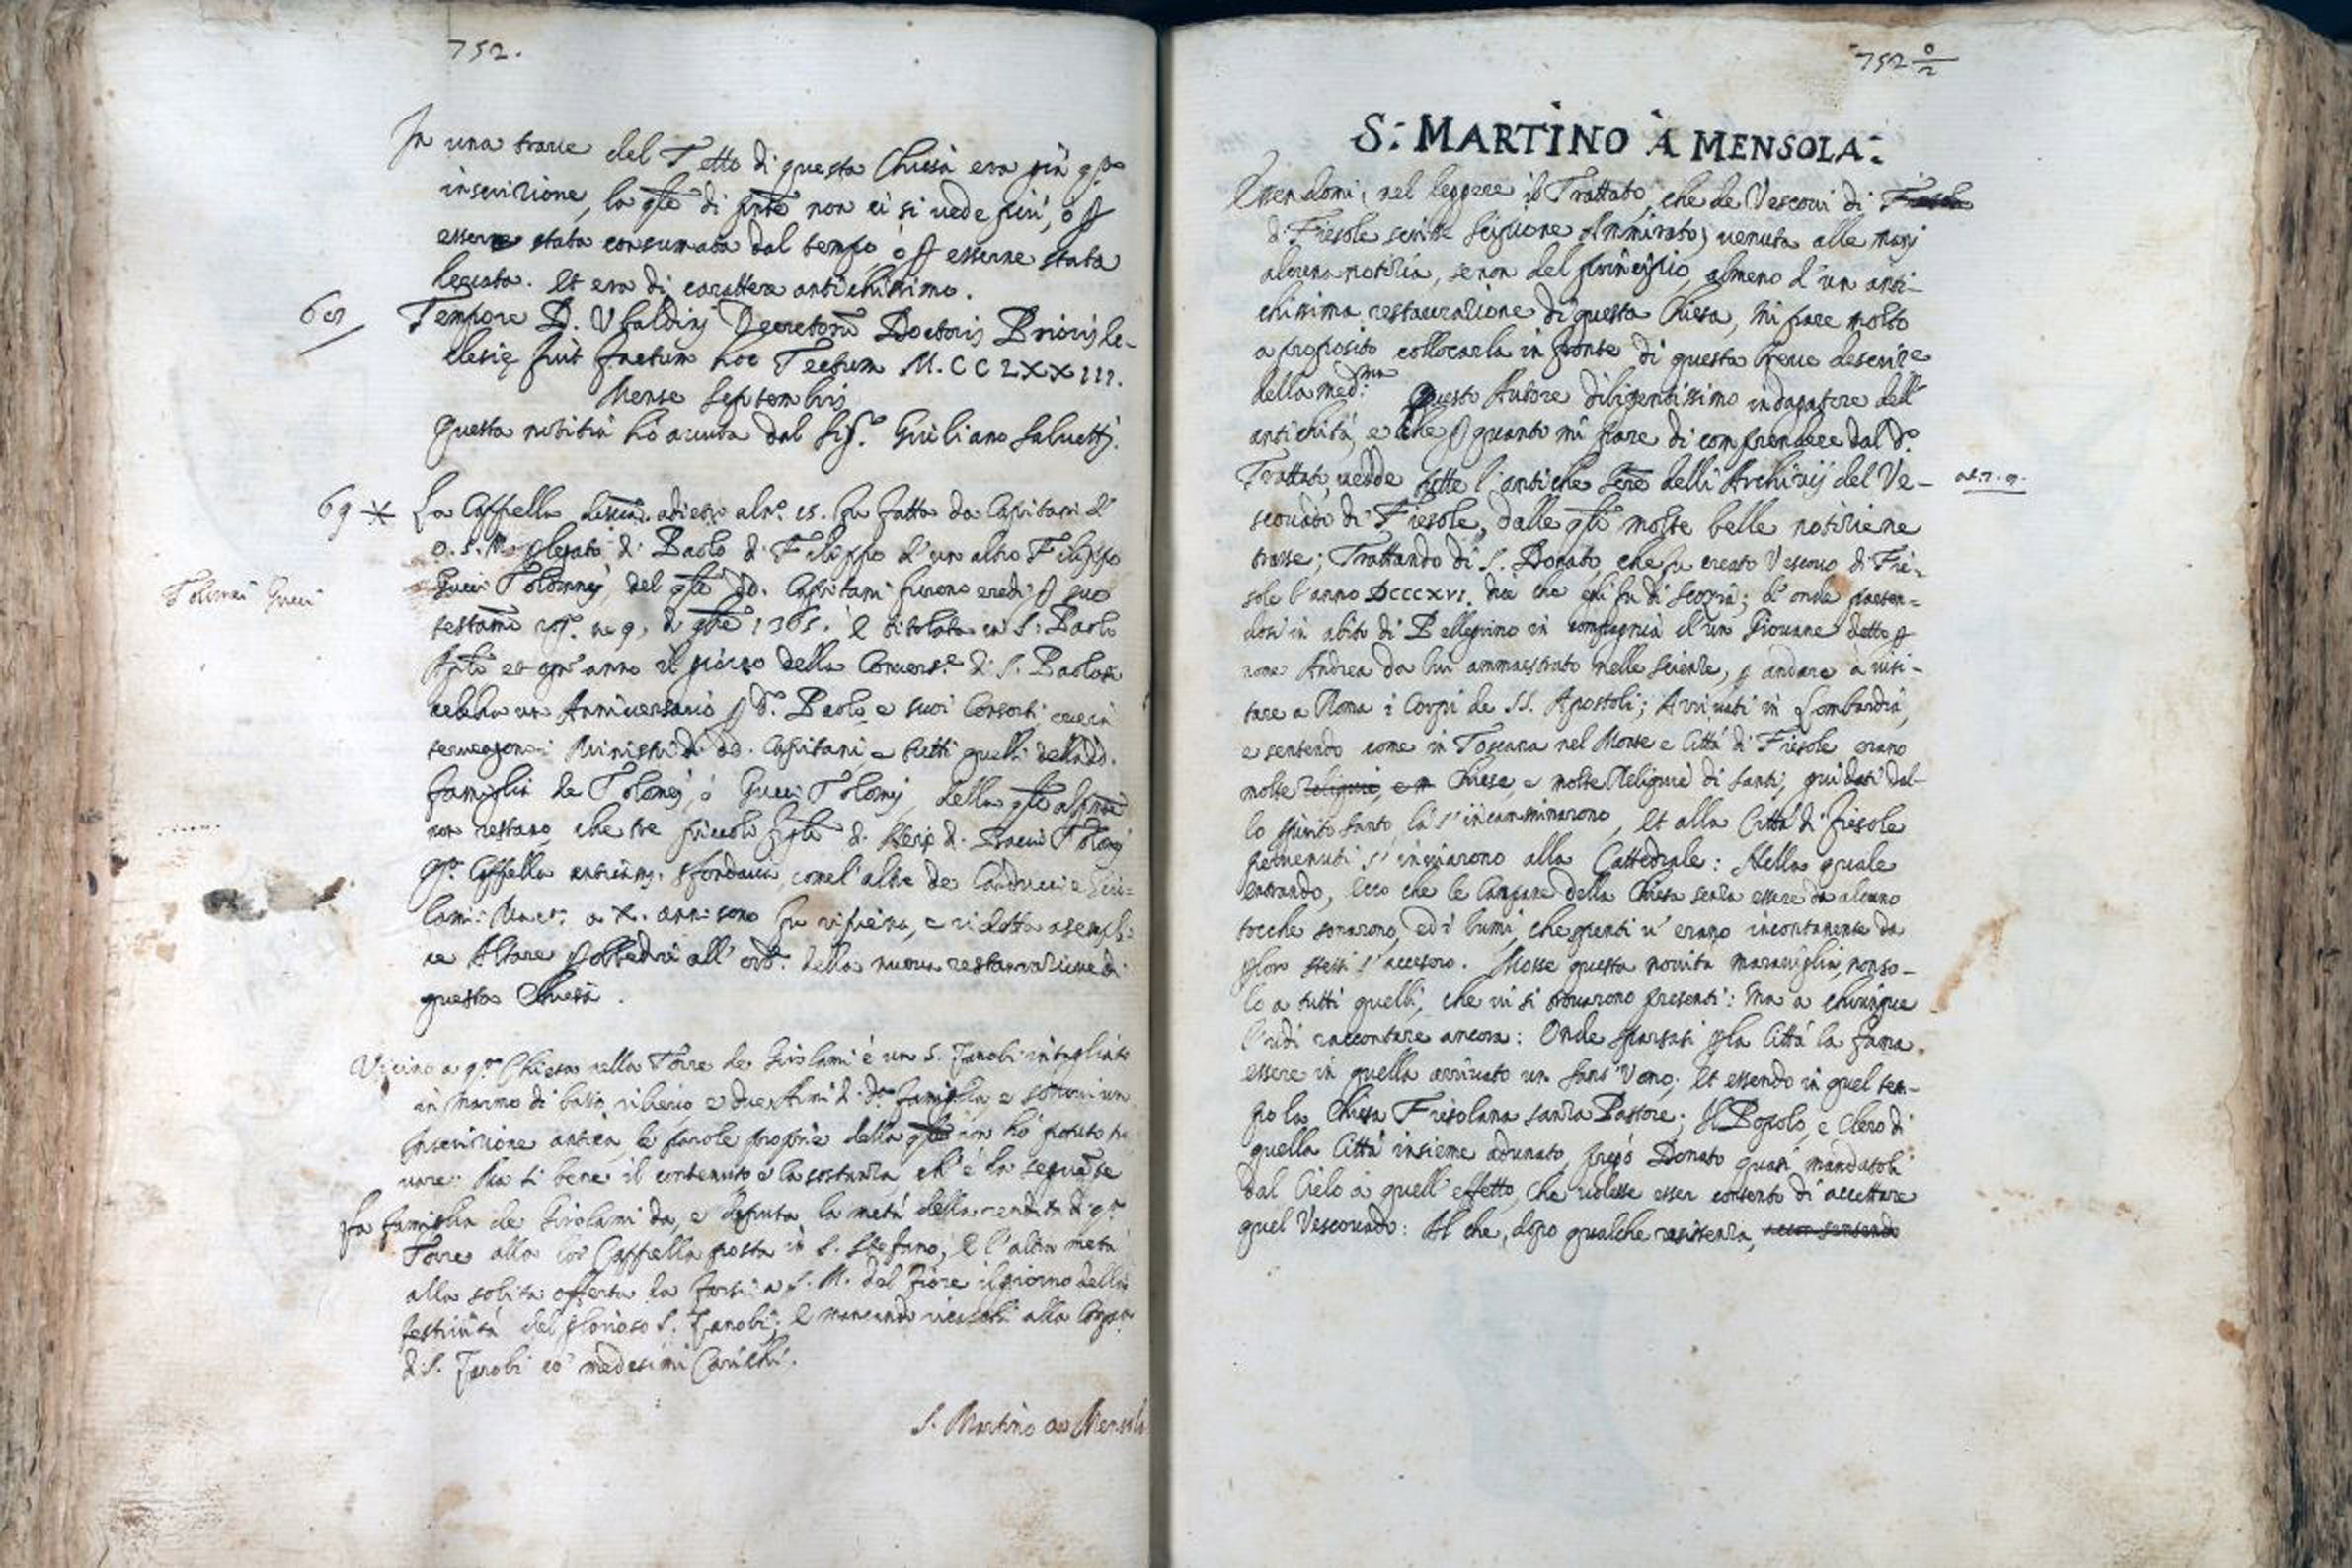 752.
In una traue del Tetto di questa Chiesa era già q.sta
inscrizione, la qle di pnte non ci si uede più, ò p
esserne stata consumata dal tempo, ò p esserne stata
leuata. Et era di carattere antichissimo.
60
Tempore D. Vbaldinj Decretorũ Doctoris Prioris Ec-
clesię fuit factum hoc Tectum M.CCLXXIII.
Mense Septembris
Questa notitia hò auuta dal Sig.r Giuliano Saluetti.
69 *
La Cappella adietro al n.o 15. fu fatta da Capitani d'
O. S. M. p legato di Paolo di Filippo d'un altro Filippo
Tolomei Gucci
Gucci Tolomej, del qle dd. Capitani furono eredi p suo
testamẽ 1365. È titolata in S. Paolo
et ogn' anno il giorno della Conuers.e di S. Paolo si
celebra un Anniuersario p d.o Paolo e suoi Consorti
Ministri di dd. Capitani e tutti quelli della d.
famiglia de Tolomej, ò Gucci Tolomej, della qle al pnte
non restano che tre piccoli figli di Tolomej
Q.a Cappella sfondaua, come l'altre de Carducci e Giro-
lami: a X. anni sono fu ripiena, e ridotta a sempli-
ce Altare p obbedire all' ord.e della nuoua restaurazione di
questa Chiesa.
Vicino a q.sta Chiesa nella Torre de Girolami è un S. Zanobi intagliato
in marmo di basso rilieuo e due Armi di d.a famiglia e sottoui un
Inscrizione antica, le parole proprie della qle non hò potuto tro
uare. Ma si bene il contenuto e la sostanza, ch'è la seguẽte
La famiglia de Girolami da, e deputa la metà della rendita di q.sta
Torre alla lor Cappella posta in S. Stefano, E l'altra metà
alla solita offerta da farsi a S. M. del Fiore il giorno della
festiuità del glorioso S. Zanobi; E mancando alla Comp.a
di S. Zanobi co' medesimi Carichi.
S. Martino a Mensola
752 0/2
S. MARTINO À MENSOLA.
Essendomi, nel leggere il Trattato, che de Vescoui di Fiesole
di Fiesole scrisse Scipione Ammirato, venuta alle mani
alcuna notizia, se non del principio, almeno d'un anti-
chissima restaurazione di questa Chiesa, mi pare molto
a proposito collocarla in fronte di questa breue descrize
della med.ma Questo Autore diligentissimo indagatore dell'
antichità, e che p quanto mi pare di comprendere dal d.o
Trattato, uedde tutte l'antiche delli Archiuij del Ve-
scouado di Fiesole, dalle qli molte belle notizie ne
trasse; Trattando di S. Donato, che fu creato Vescouo di Fie-
sole l'anno DCCCXVI. dice che egli fu di Scozia; d'onde parten-
dosi in abito di Pellegrino in compagnia d'un Giouane detto p
nome Andrea da lui ammaestrato nelle scienze, p andare à uisi-
tare a Roma i Corpi de SS. Apostoli; Arriuati in Lombardia,
e sentendo come in Toscana nel Monte e Città di Fiesole erano
molte reliquie, e m Chiese, e molte Reliquie di Santi, guidati dal-
lo Spirito Santo là s'incamminarono, Et alla Città di Fiesole
peruenuti s'inuiarono alla Cattedrale: Nella quale
entrando, Ecco che le Campane della Chiesa senza essere da alcuno
tocche sonarono, ed i lumi, che spenti u' erano incontanente da
p loro stessi s'accesero. Mosse questa nouità marauiglia, non so-
lo a tutti quelli, che ui si trouarono presenti: ma a chiunque
l'udì raccontare ancora: Onde sparsasi p la Città la fama
essere in quella arriuato un Sant' Vomo; Et essendo in quel tem-
po la Chiesa Fiesolana sanza Pastore; Il Popolo, e Clero di
quella Città insieme adunato, pregò Donato quasi mandatoli
dal Cielo à quell' effetto, che uolesse esser contento di accettare
quel Vescouado: Al che, dopo qualche resistenza, acconsentendo